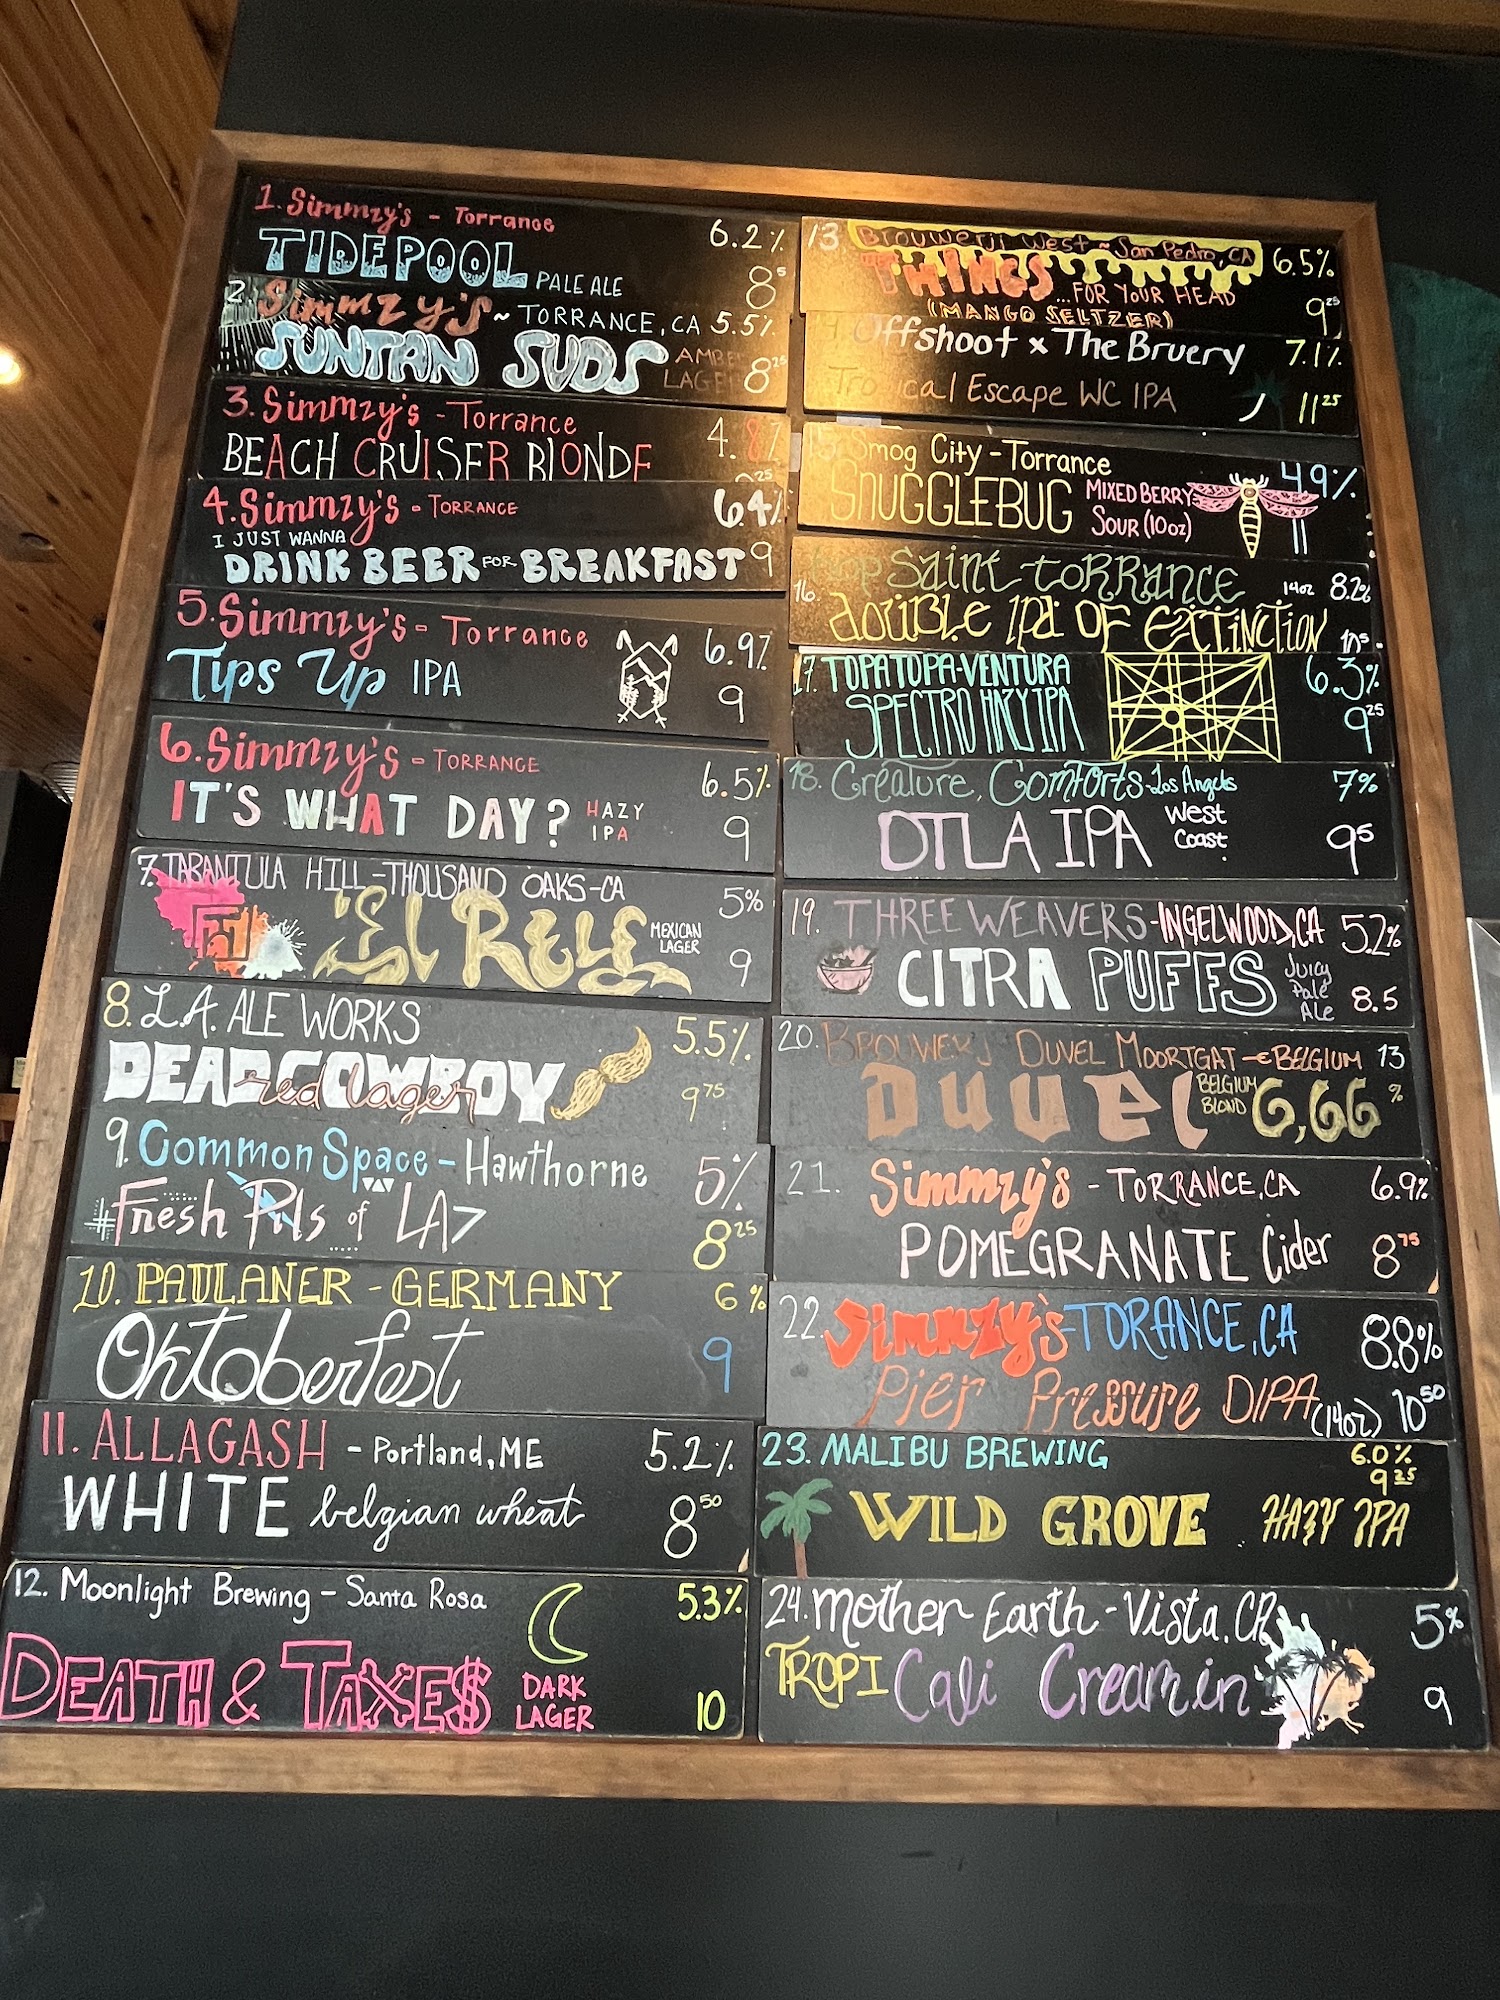 1. Simmzy's - Torrance
6.2%
TIDEPOOL PALE ALE
8⁵
2. Simmzy's ~ TORRANCE, CA 5.5%
SUNTAN SUDS AMBER LAGER 8²⁵
3. Simmzy's - Torrance
4.8%
BEACH CRUISER BLONDE
4. Simmzy's - TORRANCE
6.4%
I JUST WANNA
DRINK BEER FOR BREAKFAST 9
5. Simmzy's - Torrance
6.9%
Tips Up IPA
9
6. Simmzy's - TORRANCE
6.5%
IT'S WHAT DAY? HAZY IPA
9
7. TARANTULA HILL-THOUSAND OAKS-CA
5%
El REYE MEXICAN LAGER
9
8. L.A. ALE WORKS
5.5%
DEAD COWBOY
red lager
9⁷⁵
9. Common Space - Hawthorne
5%
#Fresh Pils of LA>
8²⁵
10. PAULANER - GERMANY
6%
Oktoberfest
9
11. ALLAGASH - Portland, ME
5.2%
WHITE belgian wheat
8⁵⁰
12. Moonlight Brewing - Santa Rosa
5.3%
DEATH & TAXE$ DARK LAGER
10
13 Brouwerji West ~ San Pedro, CA
6.5%
THINGS ...FOR YOUR HEAD
(MANGO SELTZER)
9²⁵
Offshoot x The Bruery
7.1%
Tropical Escape WC IPA
11²⁵
15. Smog City - Torrance
4.9%
SNUGGLEBUG MIXED BERRY SOUR (10oz)
11
Hop Saint Torrance 14oz 8.2%
16. double ipa of Extinction 10⁵
17. TOPATOPA-VENTURA
6.3%
SPECTRO HAZY IPA
9²⁵
18. Creature, Comforts - Los Angeles
7%
DTLA IPA West Coast
9⁵
19. THREE WEAVERS - INGELWOOD, CA 5.2%
CITRA PUFFS Juicy Pale Ale 8.5
20. BROUWERJ DUVEL MOORTGAT - BELGIUM 13
Duvel BELGIUM BLOND 6,66%
21. Simmzy's - TORRANCE, CA 6.9%
POMEGRANATE Cider 8⁷⁵
22. Simmzy's - TORANCE, CA
8.8%
Pier Pressure DIPA (14oz) 10⁵⁰
23. MALIBU BREWING
6.0%
9²⁵
WILD GROVE HAZY IPA
24. Mother Earth - Vista, CA
5%
TROPI Cali Creamin
9